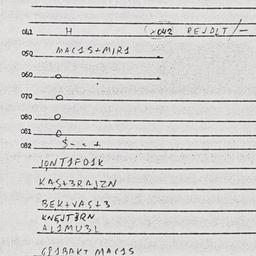 041 H (x042 REJDLT/-
050 MAC1S+M/R1
060 O
070 O
080 O
081 O
082 $--+
JQNT1FD1K
KAS+3RAJZN
BEK+VAS+3
KNEJT3RN
AL1MU3L
GP1BAKT MAC1S